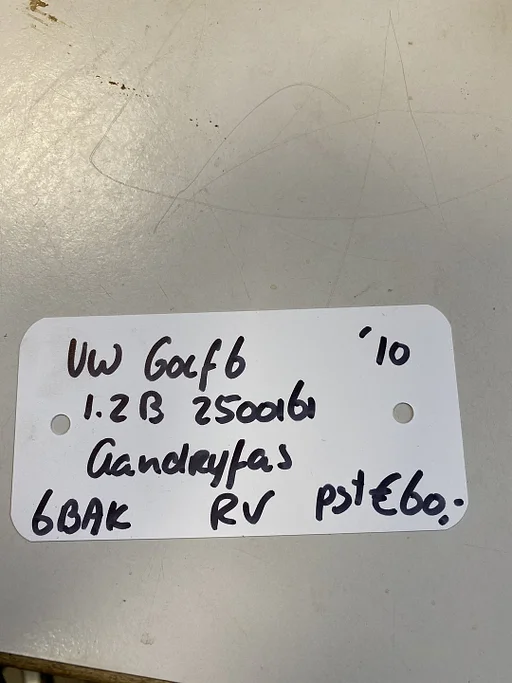 VW Golf 6 '10
1.2 B 250016i
Aandryfas
6BAK RV pst €60,-